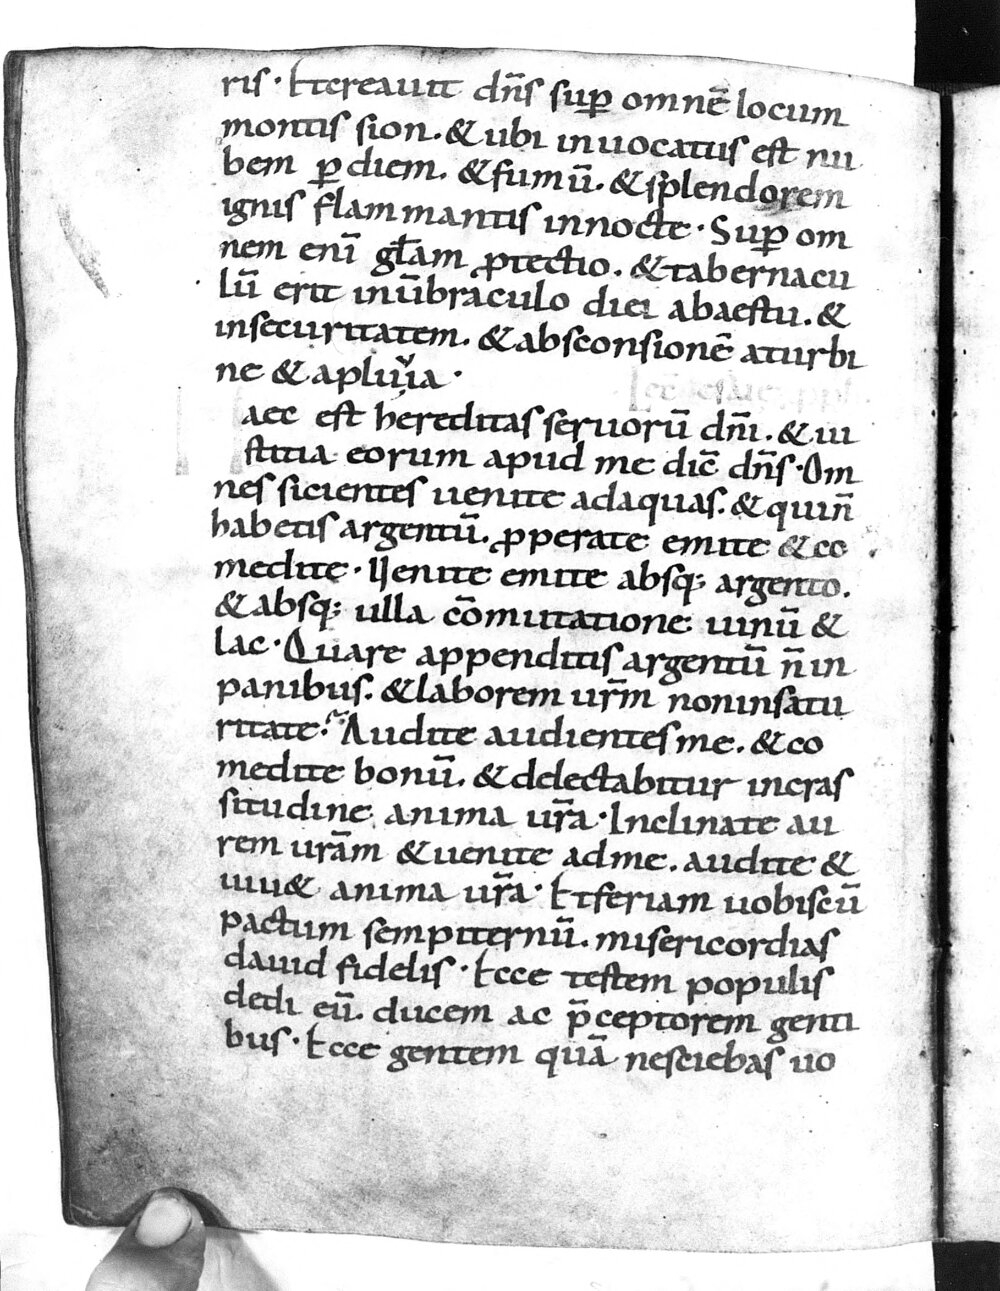 ris. Et creauit dn̄s sup̱ omnē locum
montis sion. & ubi inuocatus est nu
bem p̱ diem. & fumū. & splendorem
ignis flammantis in nocte. Sup̱ om
nem enī gł̄am ꝓtectio. & tabernacu
lū erit inūbraculo diei abaestu. &
insecuritatem. & absconsionē aturbi
ne & apluuia.
Lec̄ esaie pph
aec est hereditas seruorū dn̄i. & iu
stitia eorum apud me dic̄ dn̄s. Om
nes sicientes uenite adaquas. & quin̄
habetis argentū. ꝓperate emite & co
medite. Uenite emite absq; argento.
& absq; ulla cōmutatione uinū &
lac. Quare appenditis argentū n̄ in
panibus. & laborem ur̄m non insatu
ritate? Audite audientes me. & co
medite bonū. & delectabitur incras
situdine anima ur̄a. Inclinate au
rem urām & uenite ad me. audite &
uiu& anima ur̄a. Et feriam uobiscū
pactum sempiternū. misericordias
dauid fidelis. Ecce testem populis
dedi eū. ducem ac p̄ceptorem genti
bus. Ecce gentem quā nesciebas uo